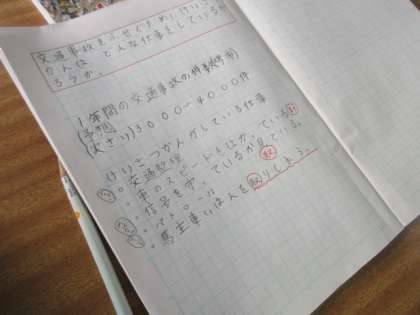 交通事故をふせぐために、けいさ
つかんは、どんな仕事をしている
ろうか。
1年間の交通事故の件数
(予想)
(実さい)3000〜4000件
けいさつかんがしている仕事
・交通整理
・車のスピードをはかっている
・信号を守っているか見ている。
・パトロール
・駐車いはんを取りしまる。